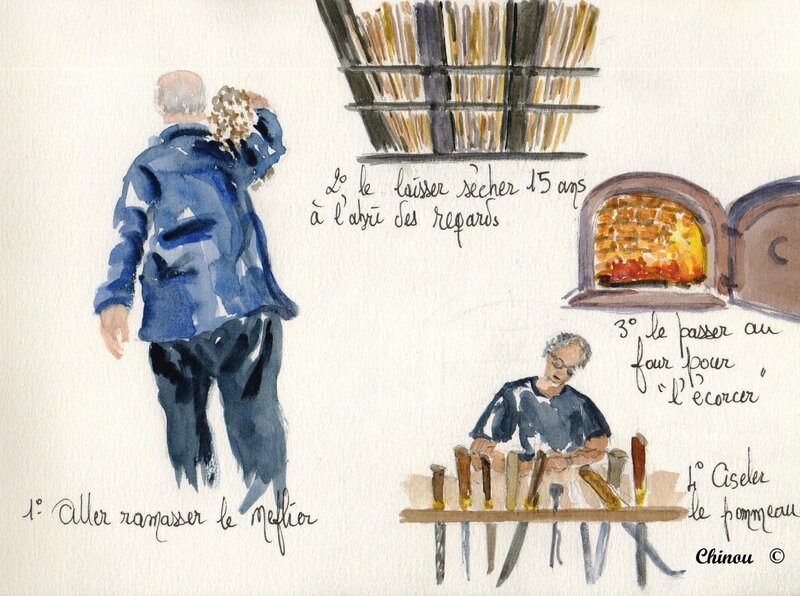 1° Aller ramasser le Meflier
2° le laisser sècher 15 ans
à l'abri des regards
3° le passer au
four pour
"l'écorcer"
4° Ciseler
le pommeau
Chinou ©